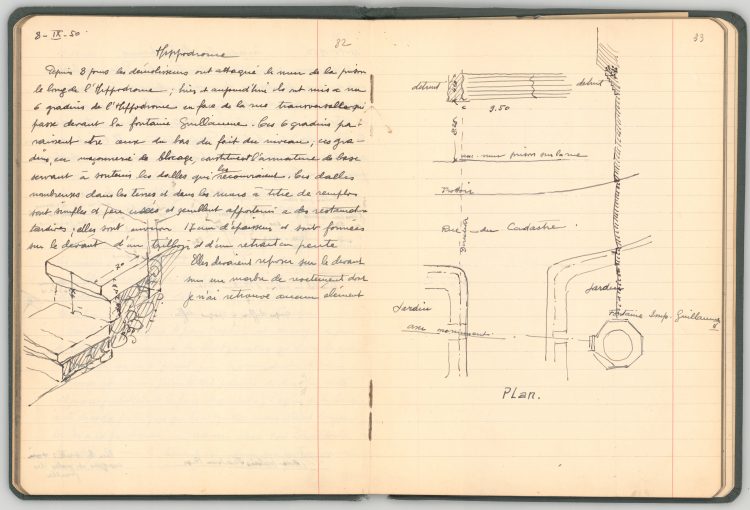 3-IX-50
32
Hippodrome
Depuis 3 jours les démolisseurs ont attaqué le mur de la prison
le long de l'Hippodrome; hier et aujourd'hui ils ont mis a nu
6 gradins de l'Hippodrome en face de la rue transversale qui
passe devant la fontaine Guillaume. Ces 6 gradins pa-
raissent être ceux du bas du fait du niveau; ces gra-
dins, en maçonnerie de blocage, constituent l'armature de base
servant à soutenir les dalles qui les recouvraient. Ces dalles
nombreuses dans les terres et dans les murs à titre de remplois
sont simples et peu usées et semblent appartenir a des restaurations
tardives; elles sont environ 17 cm d'épaisseur et sont formées
sur le devant d'un et d'un retrait en pente
Elles devaient reposer sur le devant
sur un marbre de revetement dont
je n'ai retrouvé aucun élément
70
33
détruit
détruit
9.50
mur prison sur la rue
Trotoir
Rue du Cadastre
Jardin
Jardin
axe monument
Fontaine Emp. Guillaume II
PLan.